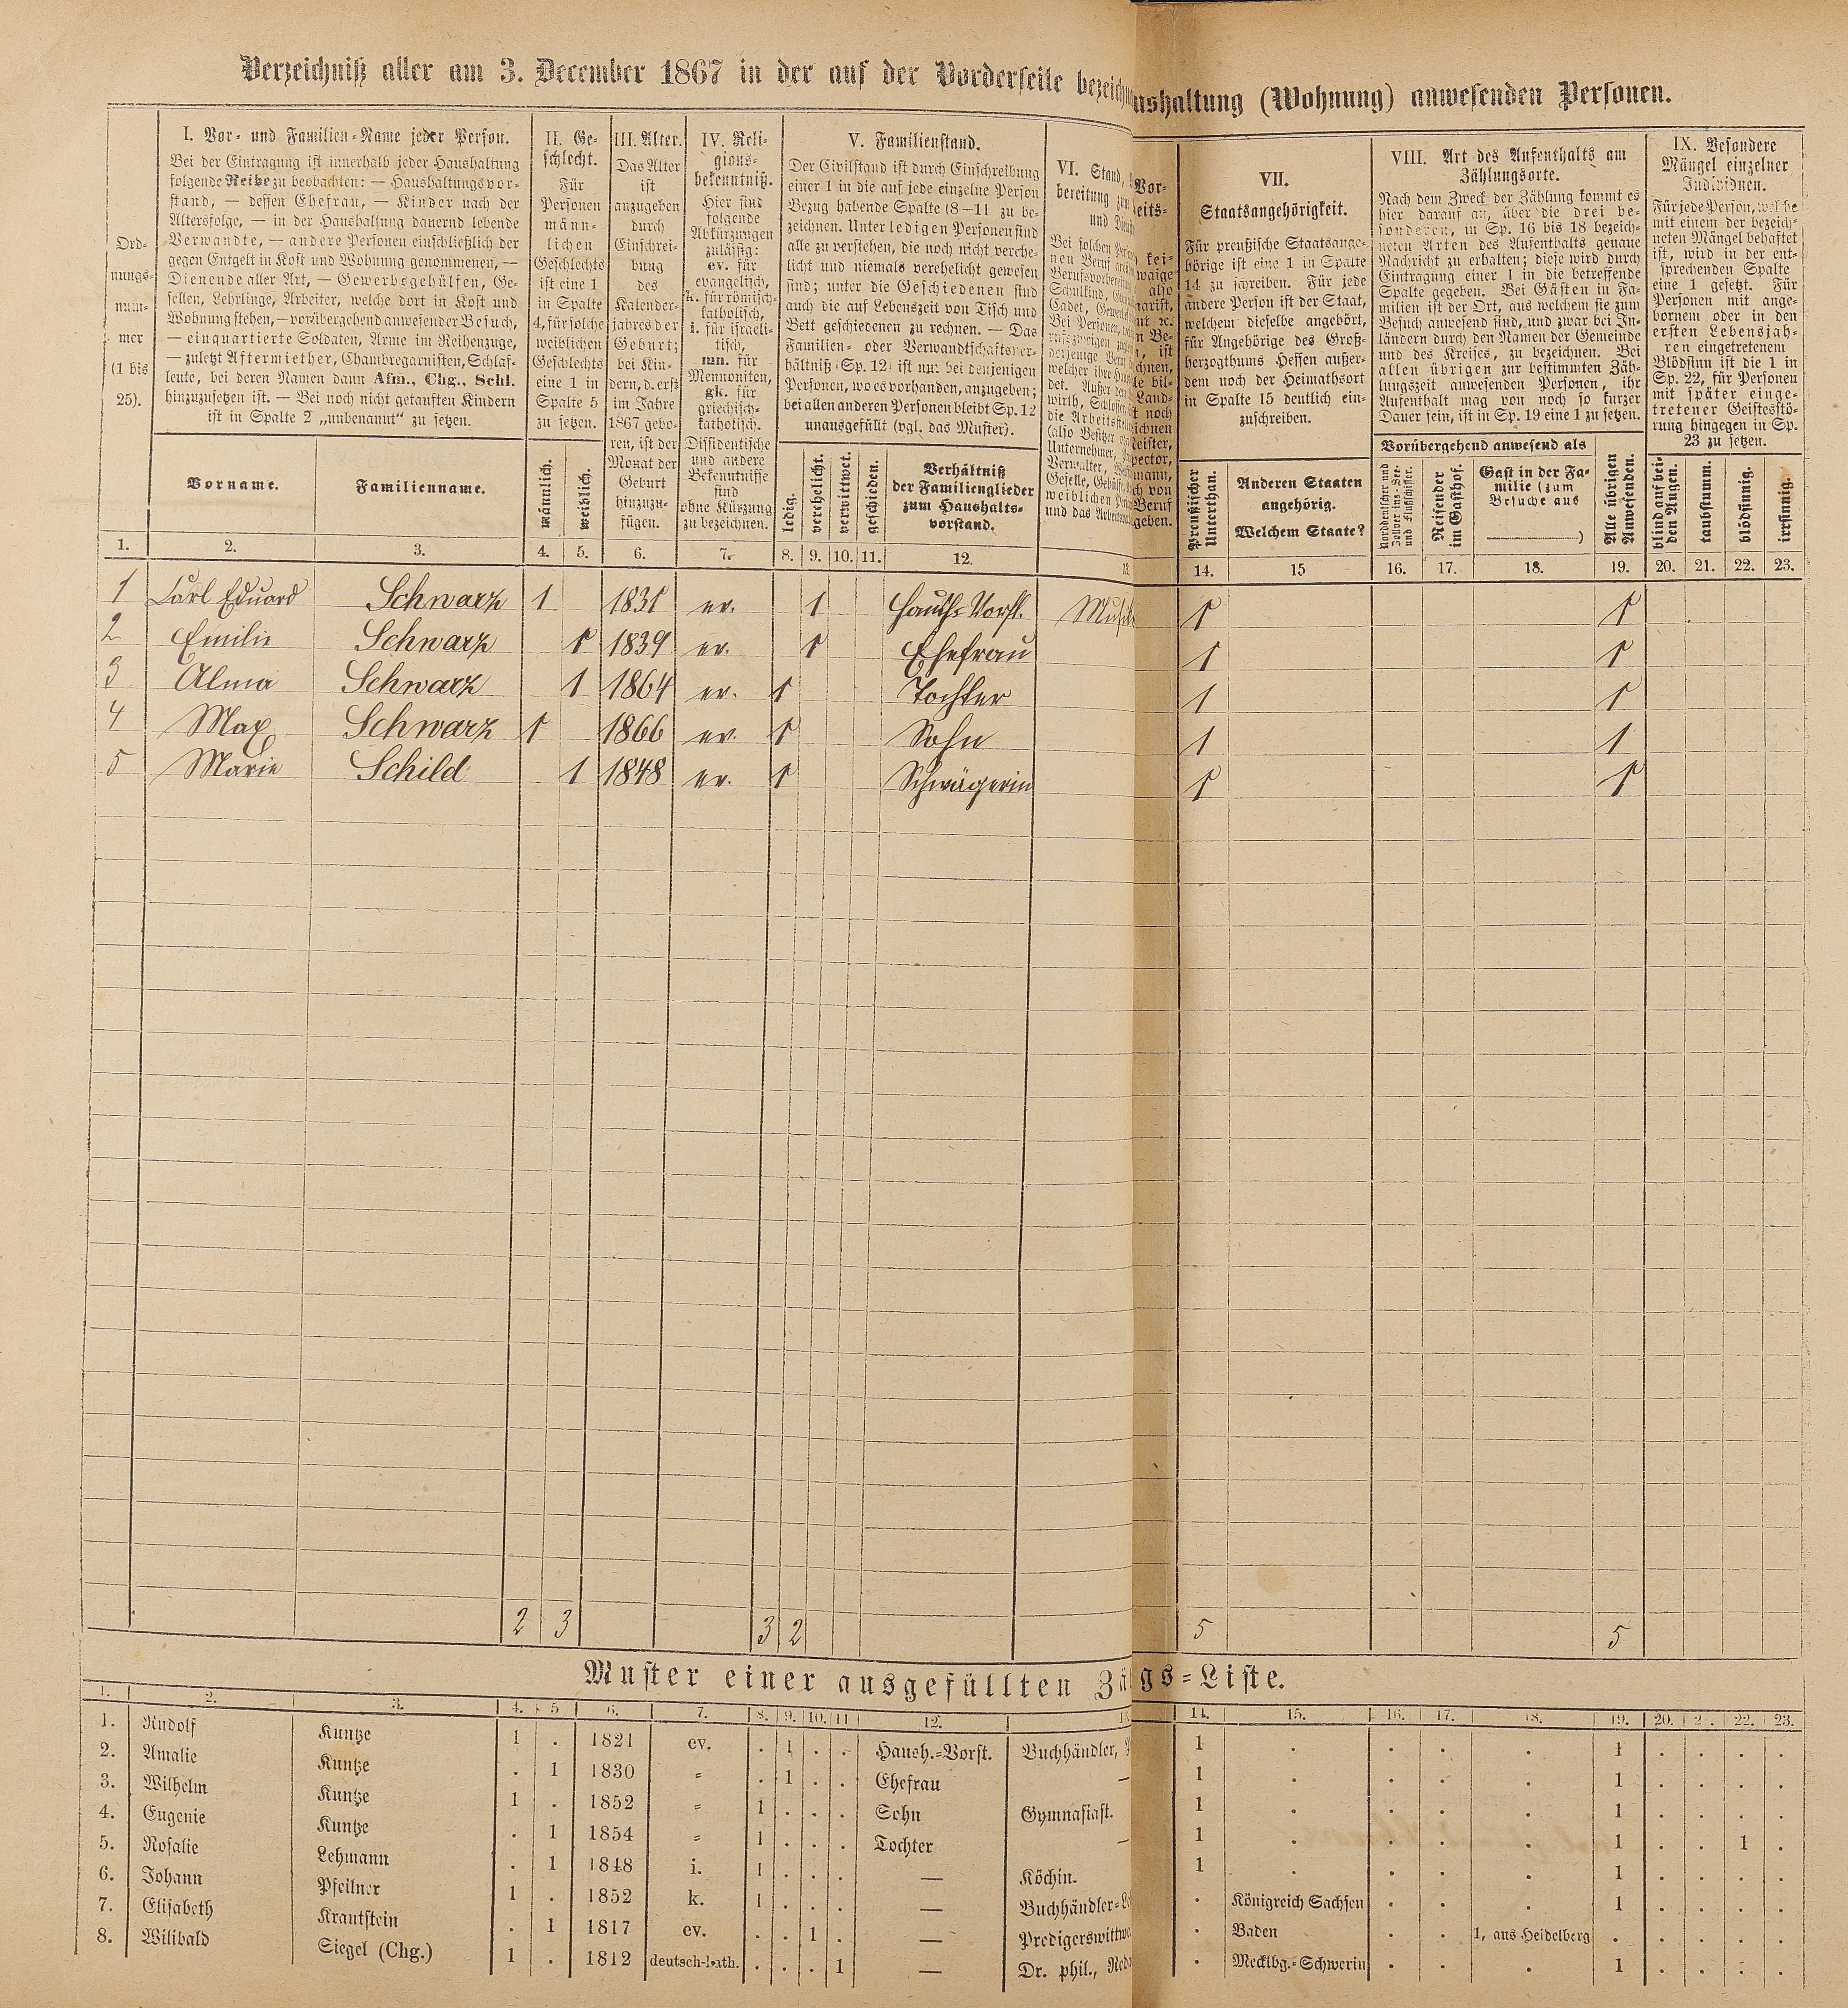 Verzeichniß aller am 3. December 1867 in der auf der Vorderseite
ushaltung (Wohnung) anwesenden Personen.
Ord-
nungs-
num-
mer
(1 bis
25).
I. Vor- und Familien-Name jeder Person.
Bei der Eintragung ist innerhalb jeder Haushaltung
folgende Reihe zu beobachten: — Haushaltungsvor-
stand, — dessen Ehefrau, — Kinder nach der
Altersfolge, — in der Haushaltung dauernd lebende
Verwandte, — andere Personen einschließlich der
gegen Entgelt in Kost und Wohnung genommenen, —
Dienende aller Art, — Gewerbsgehülfen, Ge-
sellen, Lehrlinge, Arbeiter, welche dort in Kost und
Wohnung stehen, — vorübergehend anwesender Besuch,
— einquartierte Soldaten, Arme im Reihenzuge,
— zuletzt Aftermiether, Chambregarnisten, Schlaf-
leute, bei deren Namen dann Afm., Chg., Schl.
hinzuzusetzen ist. — Bei noch nicht getauften Kindern
ist in Spalte 2 „unbenannt“ zu setzen.
Vorname.
Familienname.
II. Ge-
schlecht.
Für
Personen
männ-
lichen
Geschlechts
ist eine 1
in Spalte
4, für solche
weiblichen
Geschlechts
eine 1 in
Spalte 5
zu setzen.
männlich.
weiblich.
III. Alter.
Das Alter
ist
anzugeben
durch
Einschrei-
bung
des
Kalender-
jahres der
Geburt;
bei Kin-
dern, d. erst
im Jahre
1867 gebo-
ren, ist der
Monat der
Geburt
hinzuzu-
fügen.
IV. Reli-
gions-
bekenntniß.
Hier sind
folgende
Abkürzungen
zulässig:
ev. für
evangelisch,
k. für römisch-
katholisch,
i. für israeli-
tisch,
mn. für
Mennoniten,
gk. für
griechisch-
katholisch.
Dissidentische
und andere
Bekenntnisse
sind
ohne Kürzung
zu bezeichnen.
V. Familienstand.
Der Civilstand ist durch Einschreibung
einer 1 in die auf jede einzelne Person
Bezug habende Spalte (8—11 zu be-
zeichnen. Unter ledigen Personen sind
alle zu verstehen, die noch nicht verehe-
licht und niemals verehelicht gewesen
sind; unter die Geschiedenen sind
auch die auf Lebenszeit von Tisch und
Bett geschiedenen zu rechnen. — Das
Familien- oder Verwandtschaftsver-
hältniß (Sp. 12) ist nur bei denjenigen
Personen, wo es vorhanden, anzugeben;
bei allen anderen Personen bleibt Sp. 12
unausgefüllt (vgl. das Muster).
ledig.
verehelicht.
verwittwet.
geschieden.
Verhältniß
der Familienglieder
zum Haushalts-
vorstand.
VI. Stand,
bereitung zum
und
Bei solchen
nen Beruf
Berufsvorbereitung
Schulkind,
Cadet,
Bei Personen,
derjenige
welcher ihre
det. Außer
wirth,
die
(also Besitzer
Unternehmer,
Verwalter,
Geselle,
weiblichen
und das
Vor-
eits-
kei-
waige
also
narist,
nt ꝛc.
n Be-
, ist
chnen,
le bil-
Land-
st noch
ichnen
Meister,
pector,
mann,
ch von
Beruf
geben.
VII.
Staatsangehörigkeit.
Für preußische Staatsange-
hörige ist eine 1 in Spalte
14 zu schreiben. Für jede
andere Person ist der Staat,
welchem dieselbe angehört,
für Angehörige des Groß-
herzogthums Hessen außer-
dem noch der Heimathsort
in Spalte 15 deutlich ein-
zuschreiben.
Preußischer
Unterthan.
Anderen Staaten
angehörig.
Welchem Staate?
VIII. Art des Aufenthalts am
Zählungsorte.
Nach dem Zweck der Zählung kommt es
hier darauf an, über die drei be-
sonderen, in Sp. 16 bis 18 bezeich-
neten Arten des Aufenthalts genaue
Nachricht zu erhalten; diese wird durch
Eintragung einer 1 in die betreffende
Spalte gegeben. Bei Gästen in Fa-
milien ist der Ort, aus welchem sie zum
Besuch anwesend sind, und zwar bei In-
ländern durch den Namen der Gemeinde
und des Kreises, zu bezeichnen. Bei
allen übrigen zur bestimmten Zäh-
lungszeit anwesenden Personen, ihr
Aufenthalt mag von noch so kurzer
Dauer sein, ist in Sp. 19 eine 1 zu setzen.
Vorübergehend anwesend als
Norddeutscher und
Zollver ins-See-
und Flußschiffer.
Reisender
im Gasthof.
Gast in der Fa-
milie (zum
Besuche aus
)
Alle übrigen
Anwesenden.
IX. Besondere
Mängel einzelner
Individuen.
Für jede Person, welche
mit einem der bezeich-
neten Mängel behaftet
ist, wird in der ent-
sprechenden Spalte
eine 1 gesetzt. Für
Personen mit ange-
bornem oder in den
ersten Lebensjah-
ren eingetretenem
Blödsinn ist die 1 in
Sp. 22, für Personen
mit später einge-
tretener Geistesstö-
rung hingegen in Sp.
23 zu setzen.
blind auf bei-
den Augen.
taubstumm.
blödsinnig.
irrsinnig.
1. 2. 3. 4. 5. 6. 7. 8. 9. 10. 11. 12. 14. 15 16. 17. 18. 19. 20. 21. 22. 23.
1 Carl Eduard Schwarz 1 1831 ev. 1 Haush-Vorst. 1 1
2 Emilie Schwarz 1 1839 ev. 1 Ehefrau 1 1
3 Alma Schwarz 1 1864 ev. 1 Tochter 1 1
4 Max Schwarz 1 1866 ev. 1 Sohn 1 1
5 Marie Schild 1 1848 ev. 1 Schwägerin 1 1
2 3 3 2 5 5
Muster einer ausgefüllten Zä
gs-Liste.
1. 2. 3. 4. 5 6. 7. 8. 9. 10. 11 12. 13 14. 15. 16. 17. 18. 19. 20. 2 . 22. 23.
1. Rudolf Kuntze 1 . 1821 ev. . 1 . . Haush.-Vorst. Buchhändler, 1 . . . . 1 . . . .
2. Amalie Kuntze . 1 1830 = . 1 . . Ehefrau — 1 . . . . 1 . . . .
3. Wilhelm Kuntze 1 . 1852 = 1 . . . Sohn Gymnasiast. 1 . . . . 1 . . . .
4. Eugenie Kuntze . 1 1854 = 1 . . . Tochter — 1 . . . . 1 . . 1 .
5. Rosalie Lehmann . 1 1848 i. 1 . . . — Köchin. 1 . . . . 1 . . . .
6. Johann Pfeilner 1 . 1852 k. 1 . . . — Buchhändler-Le . Königreich Sachsen . . . 1 . . . .
7. Elisabeth Krautstein . 1 1817 ev. . . 1 . — Predigerswittwe . Baden . . 1, aus Heidelberg . . . . .
8. Wilibald Siegel (Chg.) 1 . 1812 deutsch-kath. . . . 1 — Dr. phil., . Mecklbg.-Schwerin . . . 1 . . . .